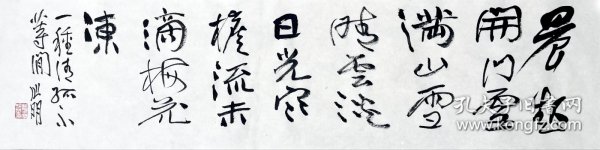 晨起
開門雪
滿山雪
晴雲淡
日光寒
檐流未
滴梅花
凍
一種清孤不
等閒
孔夫子旧书网
www.kongfz.com